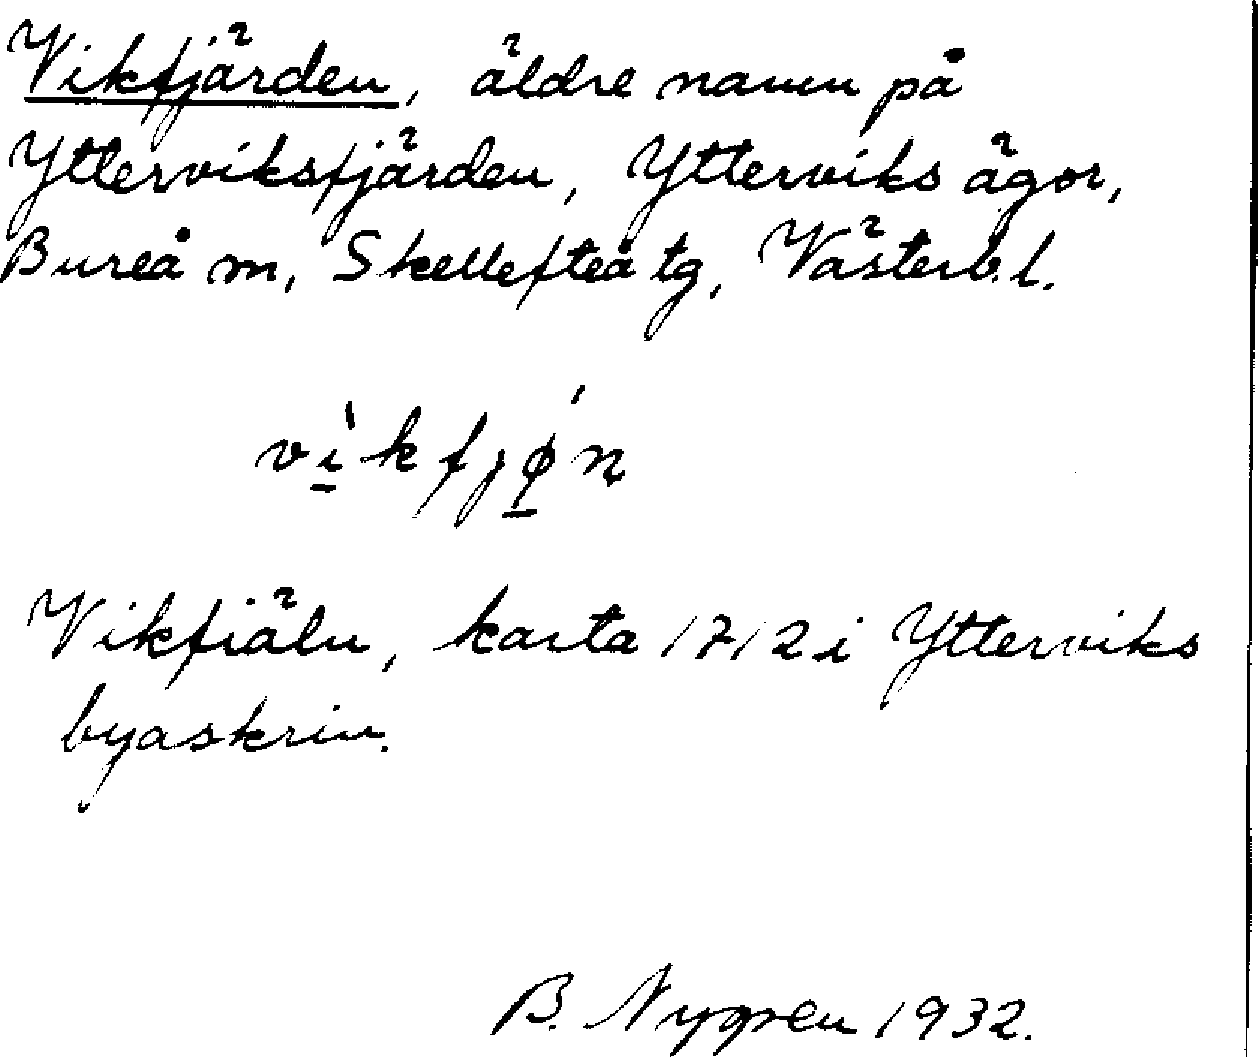 Vikfjärden, äldre namn på
Ytterviksfjärden, Ytterviks ägor,
Bureå m, Skellefteå tg, Västerb. l.
vì̱kfjǿ̱ṇ
Vikfiäln, karta 1712 i Ytterviks
byaskrin.
B. Nygren 1932.